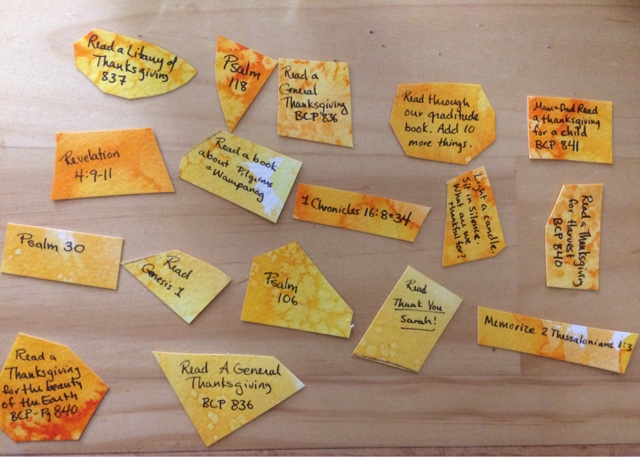 Read a Litany of
Thanksgiving
837
Psalm
118
Read a
General
Thanksgiving
BCP 836
Read through
our graditude
book. Add 10
more things.
Mom + Dad Read
a thanksgiving
for a child
BCP 841
Revelation
4:9-11
Read a book
about Pilgrims
+ Wampanog
1 Chronicles 16:8-34
Light a candle.
Sit in silence.
What are we
thankful for?
Read a Thanksgiving
for Harvest
BCP 840
Psalm 30
Read
Genesis 1
Psalm
106
Read
Thank You
Sarah!
Memorize 2 Thessalonians 1:3
Read a
Thanksgiving
for the beauty
of the Earth
BCP-Pg 840
Read A General
Thanksgiving
BCP 836